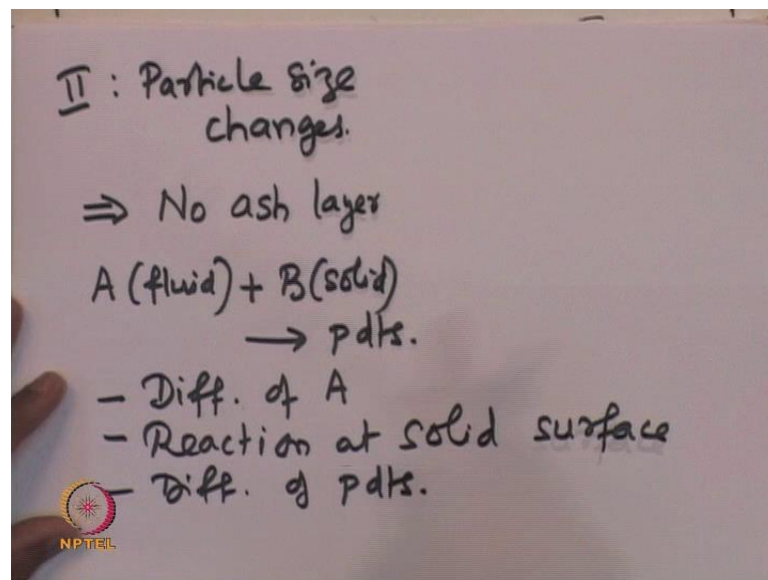 II : Particle size
changes.
⇒ No ash layer
A (fluid) + B (solid)
→ pdts.
- Diff. of A
- Reaction at solid surface
- Diff. of pdts.
NPTEL